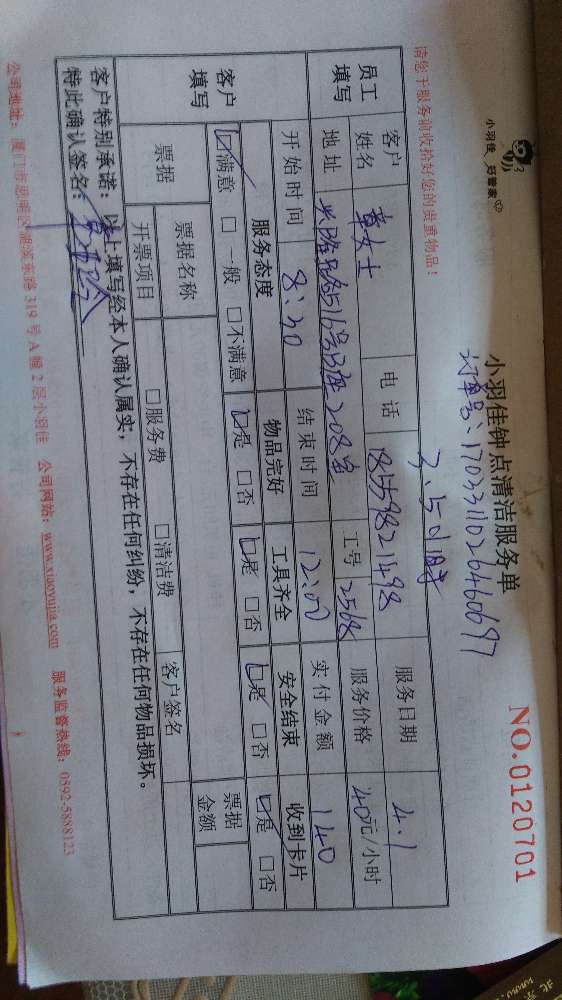 小羽佳 好管家
小羽佳钟点清洁服务单
NO.0120701
订单号:1703311026460697
3.5小时
请您于服务前收拾好您的贵重物品!
员工填写
客户姓名 章女士 电话 18559821498 服务日期 4.1
地址 516号 208室 工号 2568 服务价格 40元/小时
开始时间 8:30 结束时间 12:00 实付金额 140
客户填写
服务态度 物品完好 工具齐全 安全结束 收到卡片
☑满意 □一般 □不满意 ☑是 □否 ☑是 □否 ☑是 □否 ☑是 □否
票据 票据名称 票据金额
开票项目 □服务费 □清洁费 客户签名
客户特别承诺:以上填写经本人确认属实,不存在任何纠纷,不存在任何物品损坏。
特此确认签名:
公司地址:厦门市思明区湖滨东路319号A幢2层小羽佳 公司网站:www.xiaoyujia.com 服务监督热线:0592-5888123